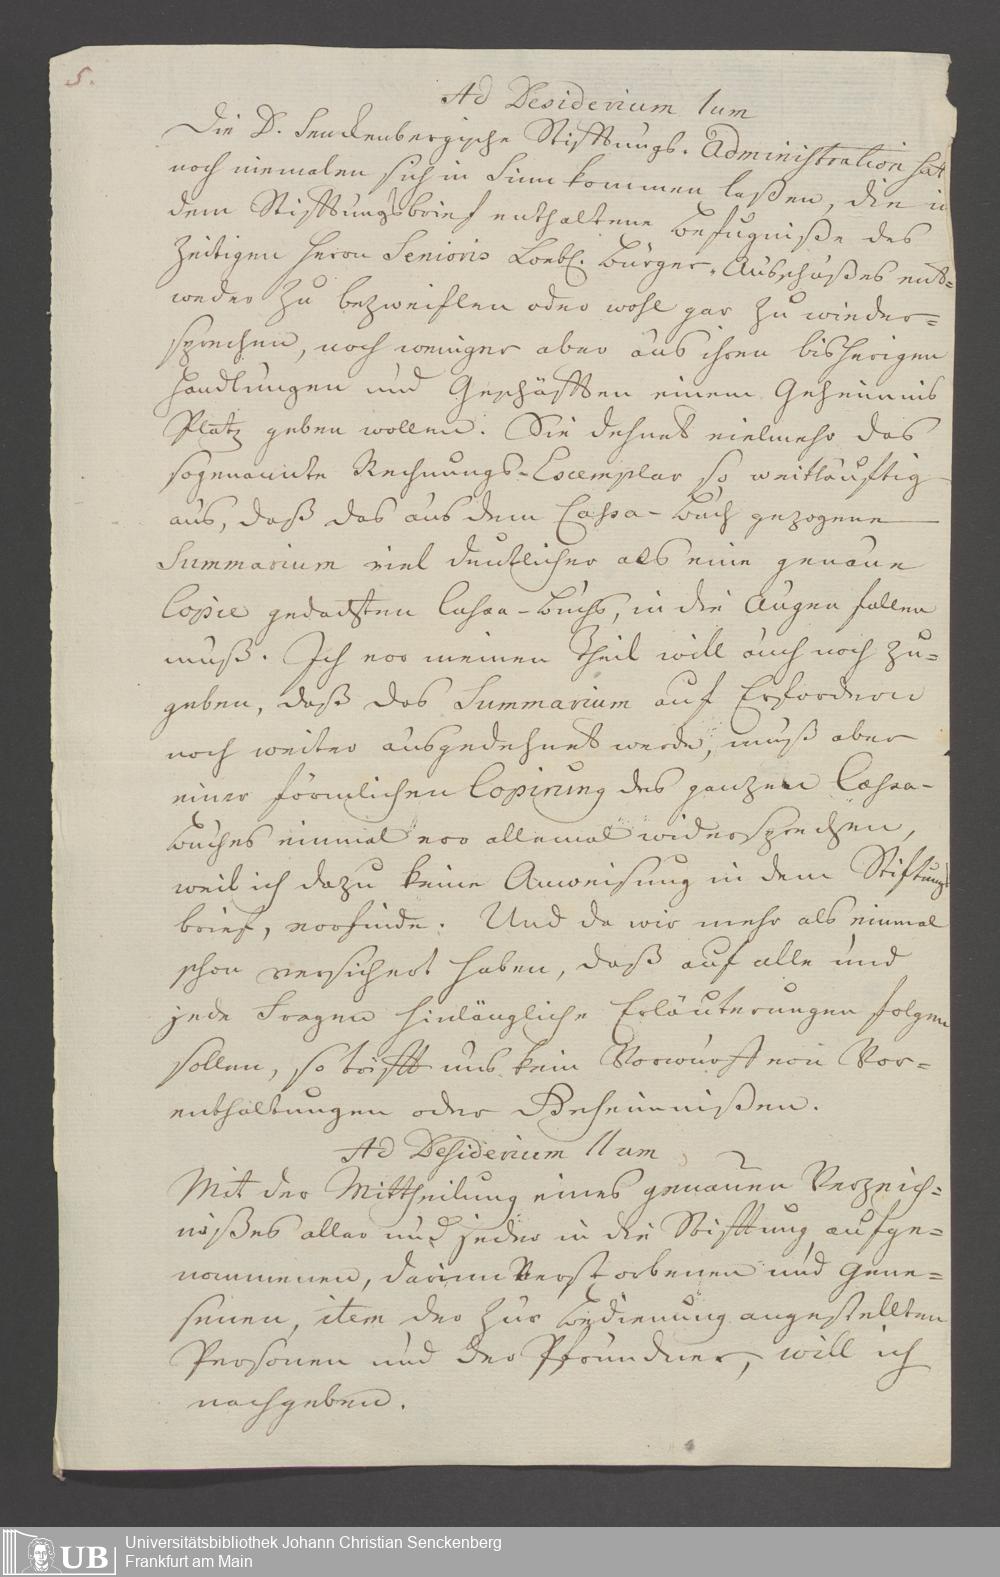 5.
Ad Desiderium Ium
Die D. Senckenbergische Stifftungs-Administration hat
noch niemalen sich in Sinn kommen laßen, die in
dem Stifftungsbrief enthaltene Befugniße des
Zeitigen Herrn Senioris Loebl. Bürger-Ausschußes ent=
weder zu bezweiflen oder wohl gar zu wieder=
sprechen, noch weniger aber aus ihren bisherigen
Handlungen und Geschäfften einem Geheimnis
Platz geben wollen. Sie dehnet vielmehr das
sogenannte Rechnungs-Exemplar so weitläuftig
aus, daß das aus dem Cassa-Buch gezogene
Summarium viel deutlicher als eine genaue
Copie gedachten Cassa-Buchs, in die Augen fallen
muß. Ich vor meinen Theil will auch noch zu=
geben, daß das Summarium auf Erfordern
noch weiter ausgedehnet werde, muß aber
einer förmlichen Copirung des ganzen Cassa-
Buches einmal vor allemal widersprechen,
weil ich dazu keine Anweisung in dem Stiftungs
brief, vorfinde. Und da wir mehr als einmal
schon versichert haben, daß auf alle und
jede Fragen hinlängliche Erläuterungen folgen
sollen, so trifft uns kein Vorwurf von Vor=
enthaltungen oder Geheimnißen.
Ad Desiderium IIum
Mit der Mittheilung eines genauen Verzeich=
nißes aller und jeder in die Stifftung aufge=
nommenen, darinn Verstorbenen und Gene=
senen, item der zur Bedienung angestellten
Personen und der Pfründner, will ich
nachgeben.
UB
Universitätsbibliothek Johann Christian Senckenberg
Frankfurt am Main